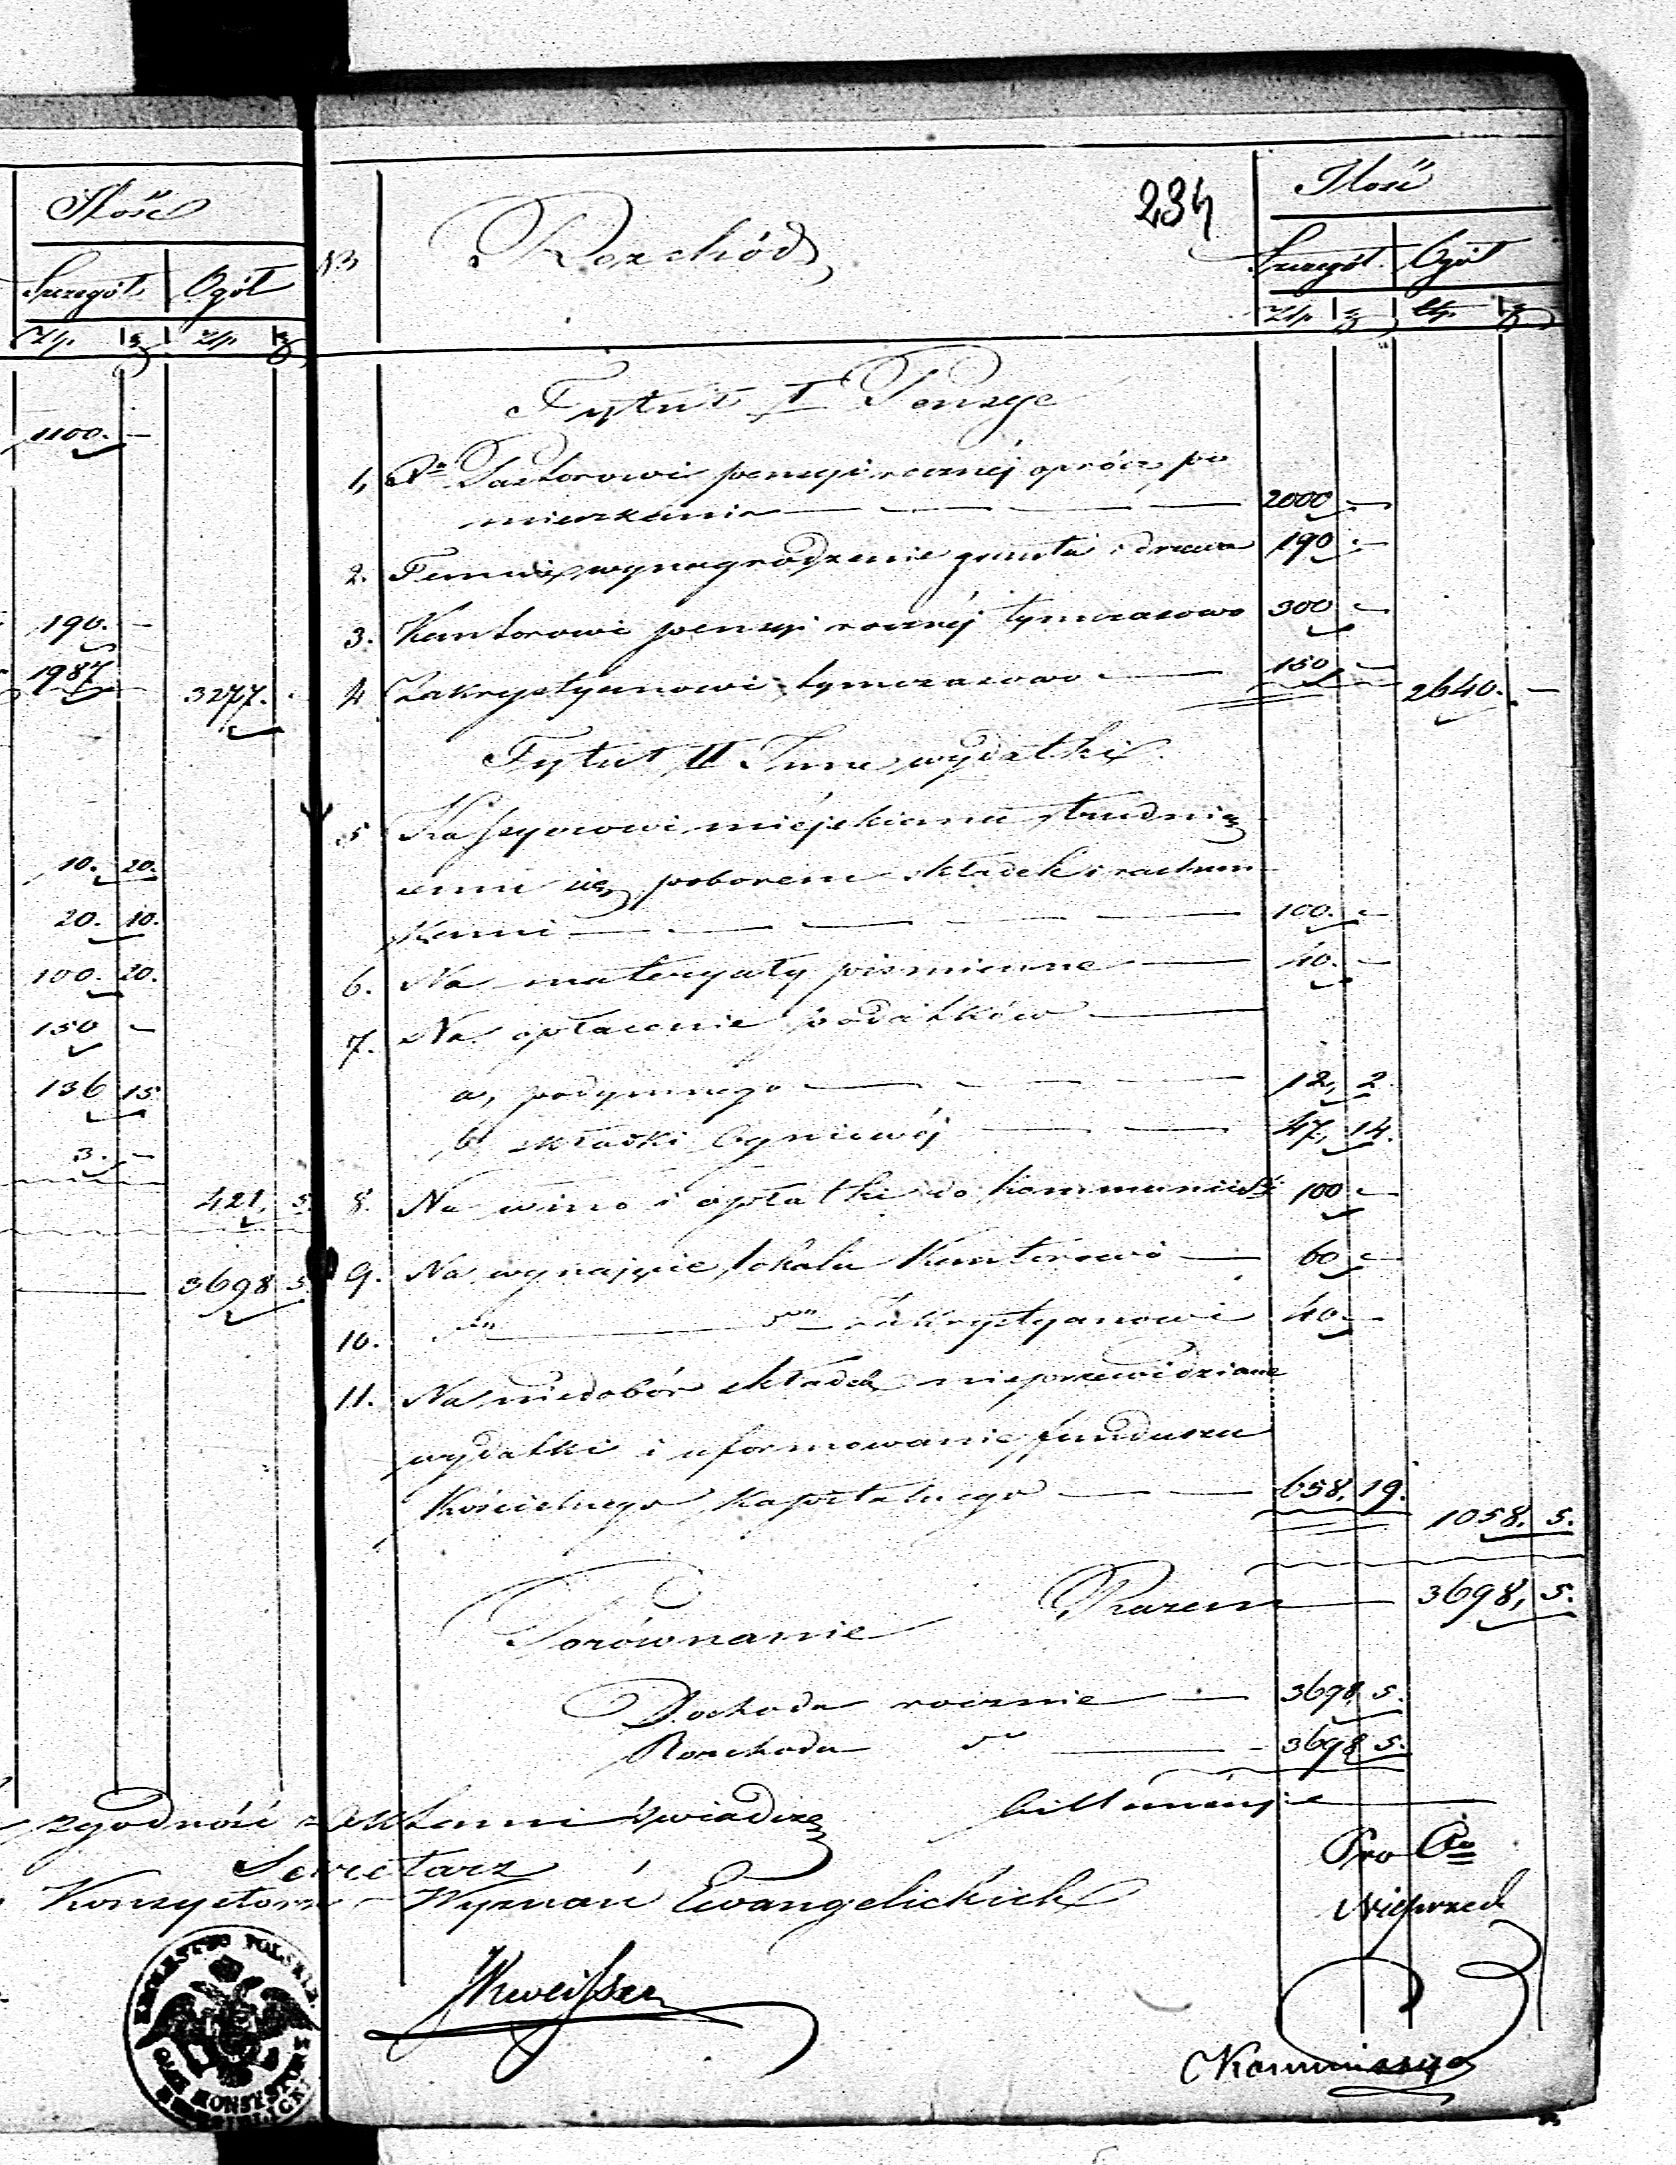 Ilość
Szczegół Ogół
Złp. g Złp. g
1100. -
190. -
1987 - 3277. -
10. 20.
20. 10.
100. 20.
150 -
136 15
3. -
421, 5.
3698 5
234
N3 Rozchód Ilość
Szczegół Ogół
Złp g Złp g
Tytuł I Pensye
1, Pastorowi pensyi rocznéj oprócz po
mieszkania 2000 -
2. Temuż wynagrodzenie gruntu i drzewa 190 -
3. Kantorowi pensyi rocznéj tymczasowo 300 -
4 Zakrystyanowi tymczasowo 150 - 2640. -
Tytuł II Inne wydatki
5 Kassyerowi miéjskiemu trudnią
cemu się poborem składek i rachun
kami 100. -
6. Na materyały piśmienne 40. -
7. Na opłacenie podatków
a, podymnego 12, 2.
b, składki Ogniowéj 47, 14.
8. Na wino i opłatki do kommunii 100 -
9. Na wynajęcie lokalu Kantorowi 60 -
10. dto dto Zakrystyanowi 40 -
11. Na niedobór składek nieprzewidziane
wydatki i uformowanie funduszu
Kościelnego Kapitalnego 658, 19. 1058, 5.
Razem 3698, 5.
Porównanie
Dochodu rocznie 3698 5.
Rozchodu dto 3698 5.
zgodność z Aktami świadczę
Sekretarz
Konsystorza Wyznań Ewangelickich
KRÓLESTWO POLSKIE
Pro
Kommissya